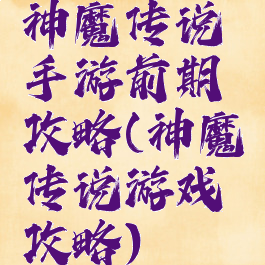 神魔传说
手游前期
攻略(神魔
传说游戏
攻略)